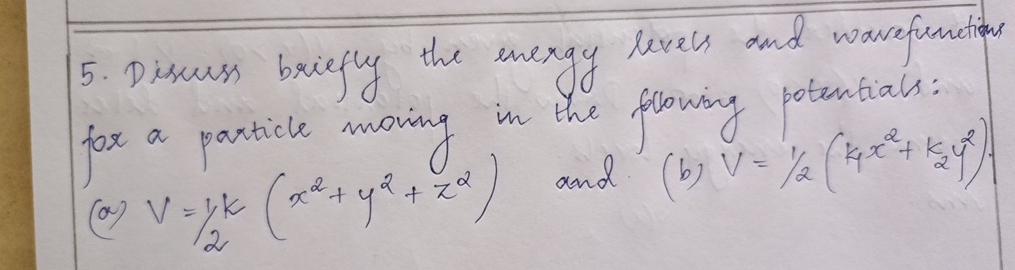 5. Discuss briefly the energy levels and wavefunctions
for a particle moving in the following potentials:
(a) V = 1/2 k (x² + y² + z²) and (b) V = 1/2 (k₁x² + k₂y²).